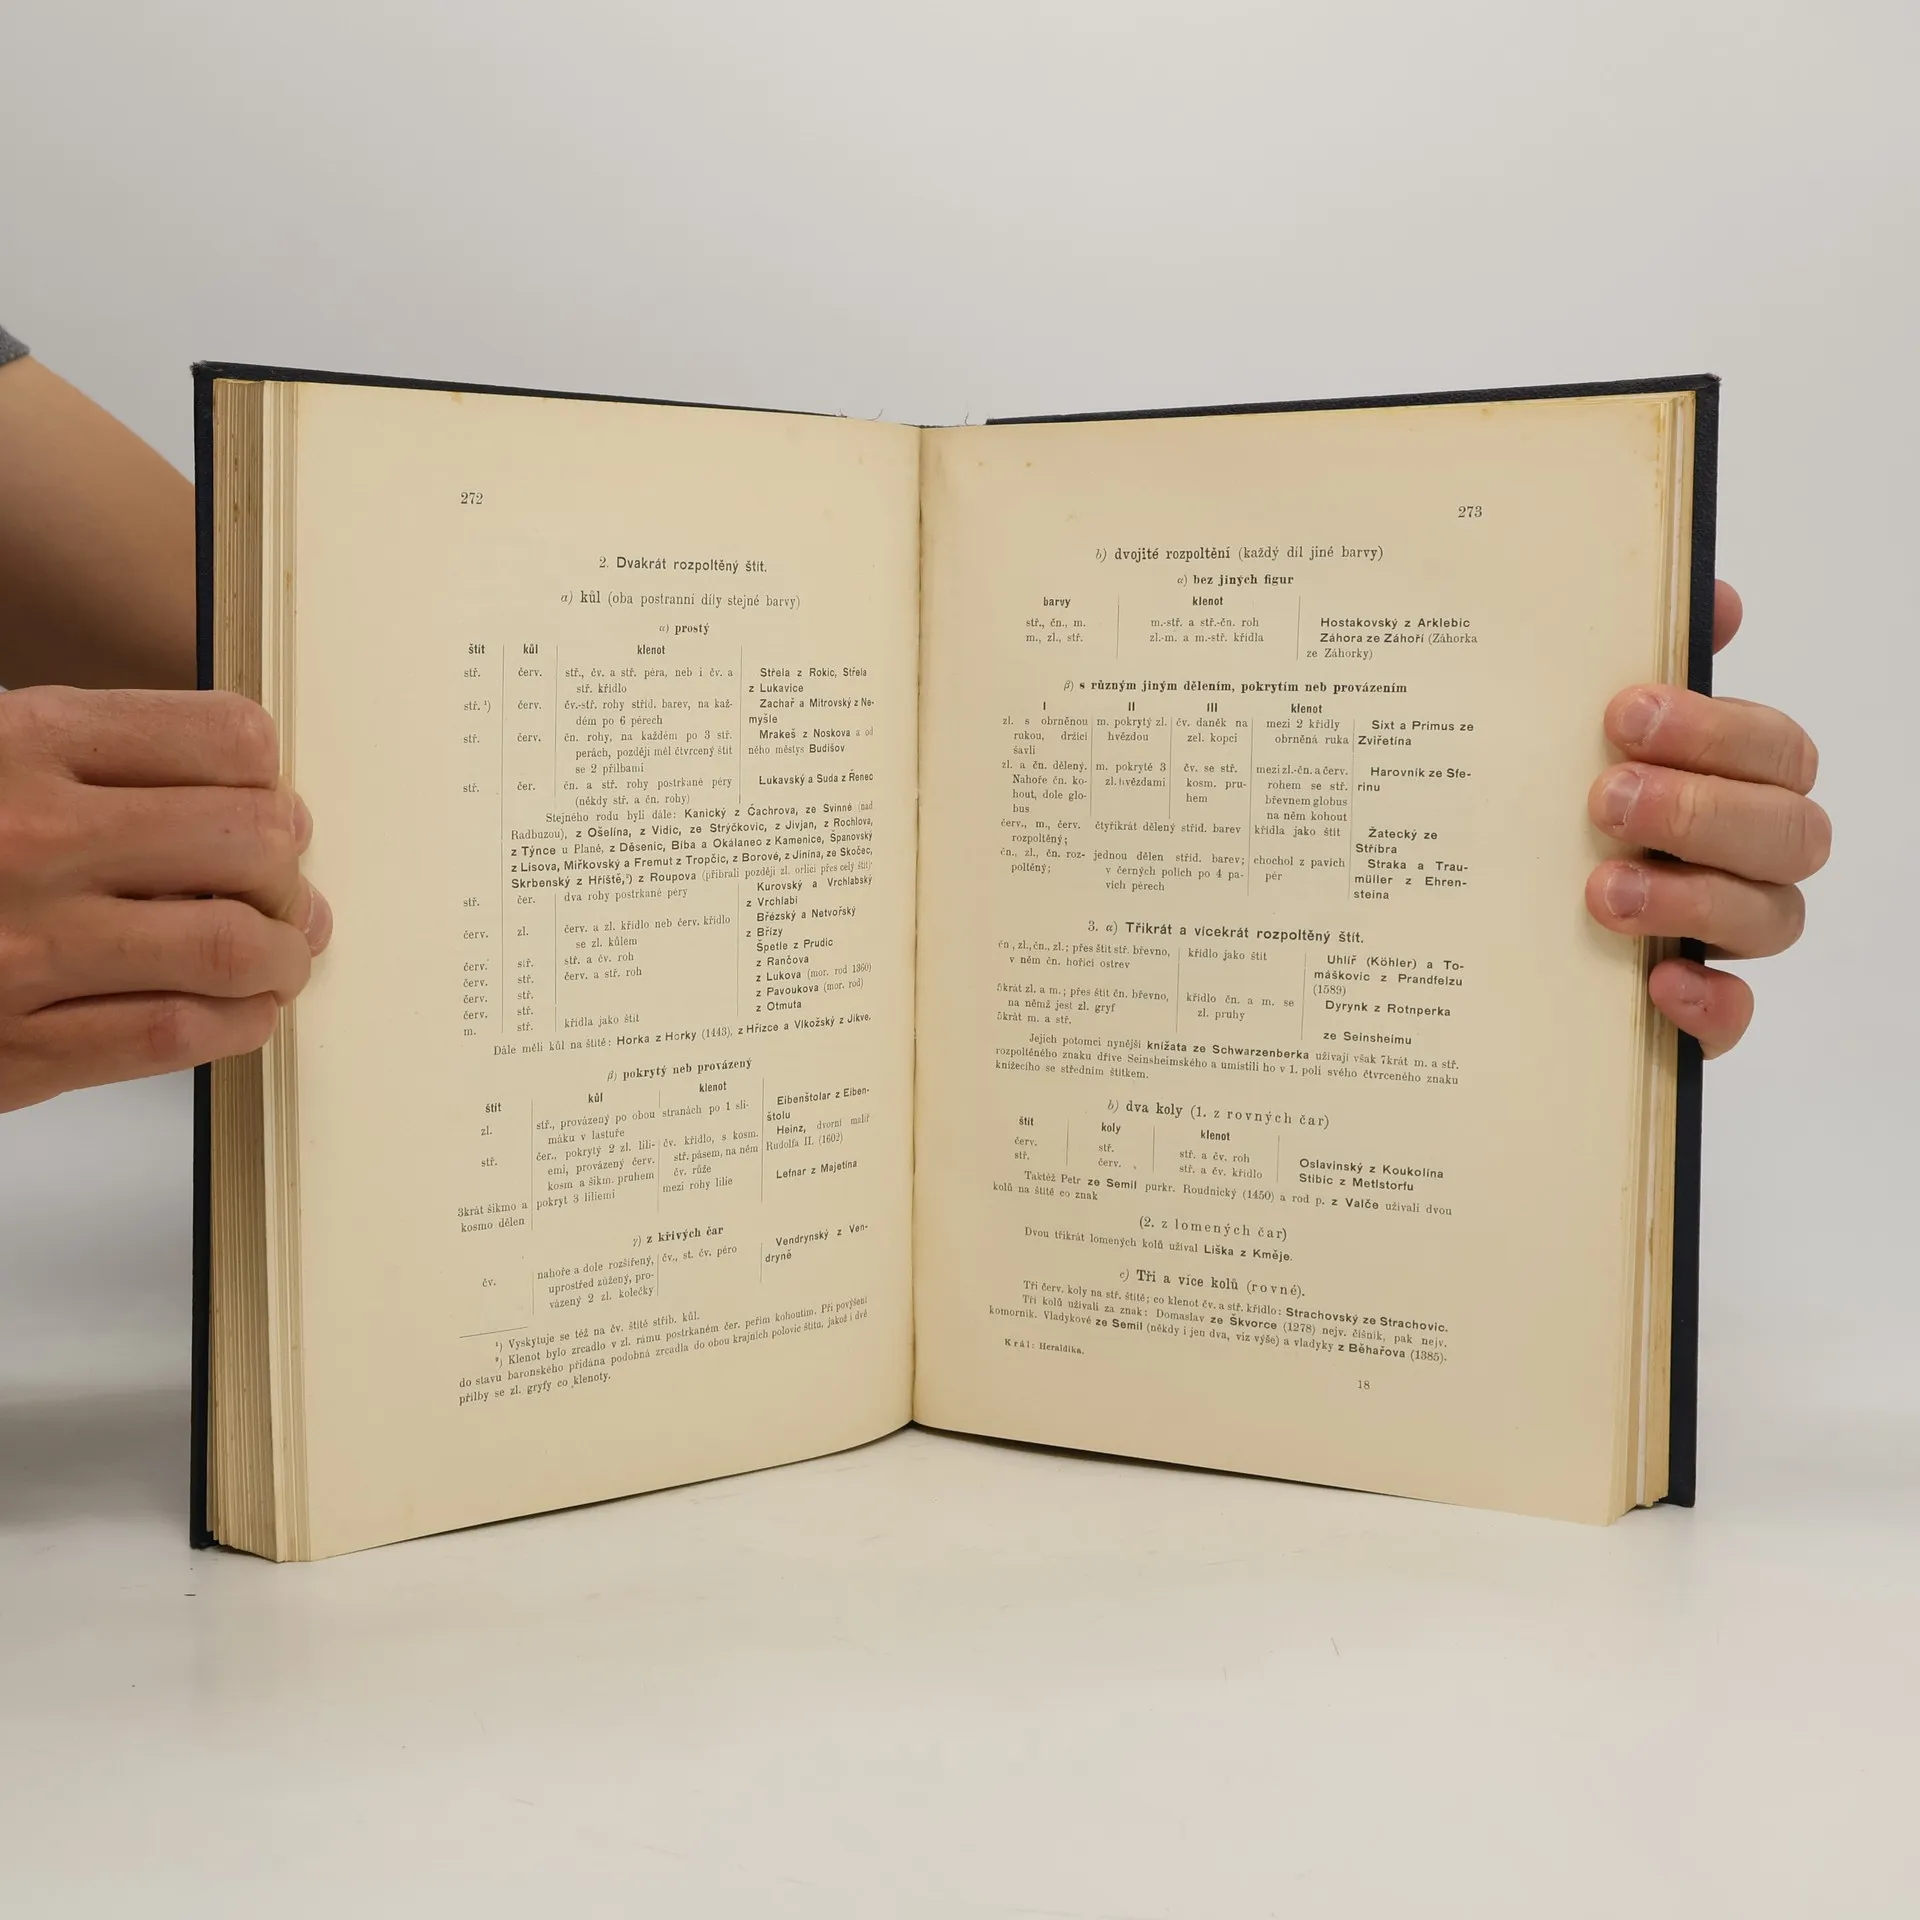 272
2. Dvakrát rozpoltěný štít.
a) kůl (oba postranní díly stejné barvy)
α) prostý
štít kůl klenot
stř. červ. stř., čv. a stř. péra, neb i čv. a Střela z Rokic, Střela
stř. křídlo z Lukavice
stř. ¹) červ. čv.-stř. rohy střid. barev, na kaž- Zachař a Mitrovský z Ne-
dém po 6 pérech myšle
stř. červ. čn. rohy, na každém po 3 stř. Mrakeš z Noskova a od
perách, později měl čtvrcený štít ného městys Budišov
se 2 přilbami
stř. čer. čn. a stř. rohy postrkané péry Lukavský a Suda z Řenec
(někdy stř. a čn. rohy)
Stejného rodu byli dále: Kanický z Čachrova, ze Svinné (nad
Radbuzou), z Ošelína, z Vidic, ze Strýčkovic, z Jivjan, z Rochlova,
z Týnce u Plané, z Děsenic, Biba a Okálanec z Kamenice, Španovský
z Lisova, Miřkovský a Fremut z Tropčic, z Borové, z Jinína, ze Skočec,
Skrbenský z Hříště,²) z Roupova (přibrali později zl. orlici přes celý štít)
stř. čer. dva rohy postrkané péry Kurovský a Vrchlabský
z Vrchlabí
červ. zl. červ. a zl. křídlo neb červ. křídlo Břézský a Netvořský
se zl. kůlem z Břízy
Špetle z Prudic
červ. stř. stř. a čv. roh z Rančova
červ. stř. červ. a stř. roh z Lukova (mor. rod 1360)
červ. stř. z Pavoukova (mor. rod)
červ. stř. z Otmuta
m. stř. křídla jako štít
Dále měli kůl na štítě: Horka z Horky (1443), z Hřizce a Vlkožský z Jikve.
β) pokrytý neb provázený
štít kůl klenot
zl. stř., provázený po obou stranách po 1 sli- Eibenštolar z Eiben-
máku v lastuře štolu
stř. čer., pokrytý 2 zl. lili- čv. křídlo, s kosm. Heinz, dvorní malíř
emi, provázený červ. stř. pásem, na něm Rudolfa II. (1602)
kosm a šikm. pruhem čv. růže
3krát šikmo a pokryt 3 liliemi mezi rohy lilie Lefnar z Majetína
kosmo dělen
γ) z křivých čar
čv. nahoře a dole rozšířený, čv., st. čv. péro Vendrynský z Ven-
uprostřed zúžený, pro- dryně
vázený 2 zl. kolečky
¹) Vyskytuje se též na čv. štítě stříb. kůl.
²) Klenot bylo zrcadlo v zl. rámu postrkaném čer. peřím kohoutím. Při povýšení
do stavu baronského přidána podobná zrcadla do obou krajních polovic štítu, jakož i dvě
přilby se zl. gryfy co klenoty.
273
b) dvojité rozpoltění (každý díl jiné barvy)
α) bez jiných figur
barvy klenot
stř., čn., m. m.-stř. a stř.-čn. roh Hostakovský z Arklebic
m., zl., stř. zl.-m. a m.-stř. křídla Záhora ze Záhoří (Záhorka
ze Záhorky)
β) s různým jiným dělením, pokrytím neb provázením
I II III klenot
zl. s obrněnou m. pokrytý zl. čv. daněk na mezi 2 křídly Sixt a Primus ze
rukou, držící hvězdou zel. kopci obrněná ruka Zviřetína
šavli
zl. a čn. dělený. m. pokryté 3 čv. se stř. mezi zl.-čn. a červ. Harovník ze Sfe-
Nahoře čn. ko- zl. hvězdami kosm. pru- rohem se stř. rinu
hout, dole glo- hem břevnem globus
bus na něm kohout
červ., m., červ. čtyřikrát dělený střid. barev křídla jako štít Žatecký ze
rozpoltěný; Stříbra
čn., zl., čn. roz- jednou dělen střid. barev; chochol z pavích Straka a Trau-
poltěný; v černých polích po 4 pa- pér müller z Ehren-
vích pérech steina
3. a) Třikrát a vícekrát rozpoltěný štít.
čn., zl., čn., zl.; přes štít stř. břevno, křídlo jako štít Uhlíř (Köhler) a To-
v něm čn. hořící ostrev máškovic z Prandfelzu
(1589)
5krát zl. a m.; přes štít čn. břevno, křídlo čn. a m. se Dyrynk z Rotnperka
na němž jest zl. gryf zl. pruhy
5krát m. a stř. ze Seinsheimu
Jejich potomci nynější knížata ze Schwarzenberka užívají však 7krát m. a stř.
rozpoltěného znaku dříve Seinsheimského a umístili ho v 1. poli svého čtvrceného znaku
knížecího se středním štítkem.
b) dva koly (1. z rovných čar)
štít koly klenot
červ. stř. stř. a čv. roh Oslavinský z Koukolína
stř. červ. stř. a čv. křídlo Stibic z Metlstorfu
Taktéž Petr ze Semil purkr. Roudnický (1450) a rod p. z Valče užívali dvou
kolů na štítě co znak
(2. z lomených čar)
Dvou třikrát lomených kolů užíval Liška z Kměje.
c) Tři a více kolů (rovné).
Tři červ. koly na stř. štítě; co klenot čv. a stř. křídlo: Strachovský ze Strachovic.
Tři kolů užívali za znak: Domaslav ze Škvorce (1278) nejv. číšník, pak nejv.
komorník. Vladykové ze Semil (někdy i jen dva, viz výše) a vladyky z Běhařova (1385).
Král: Heraldika.
18